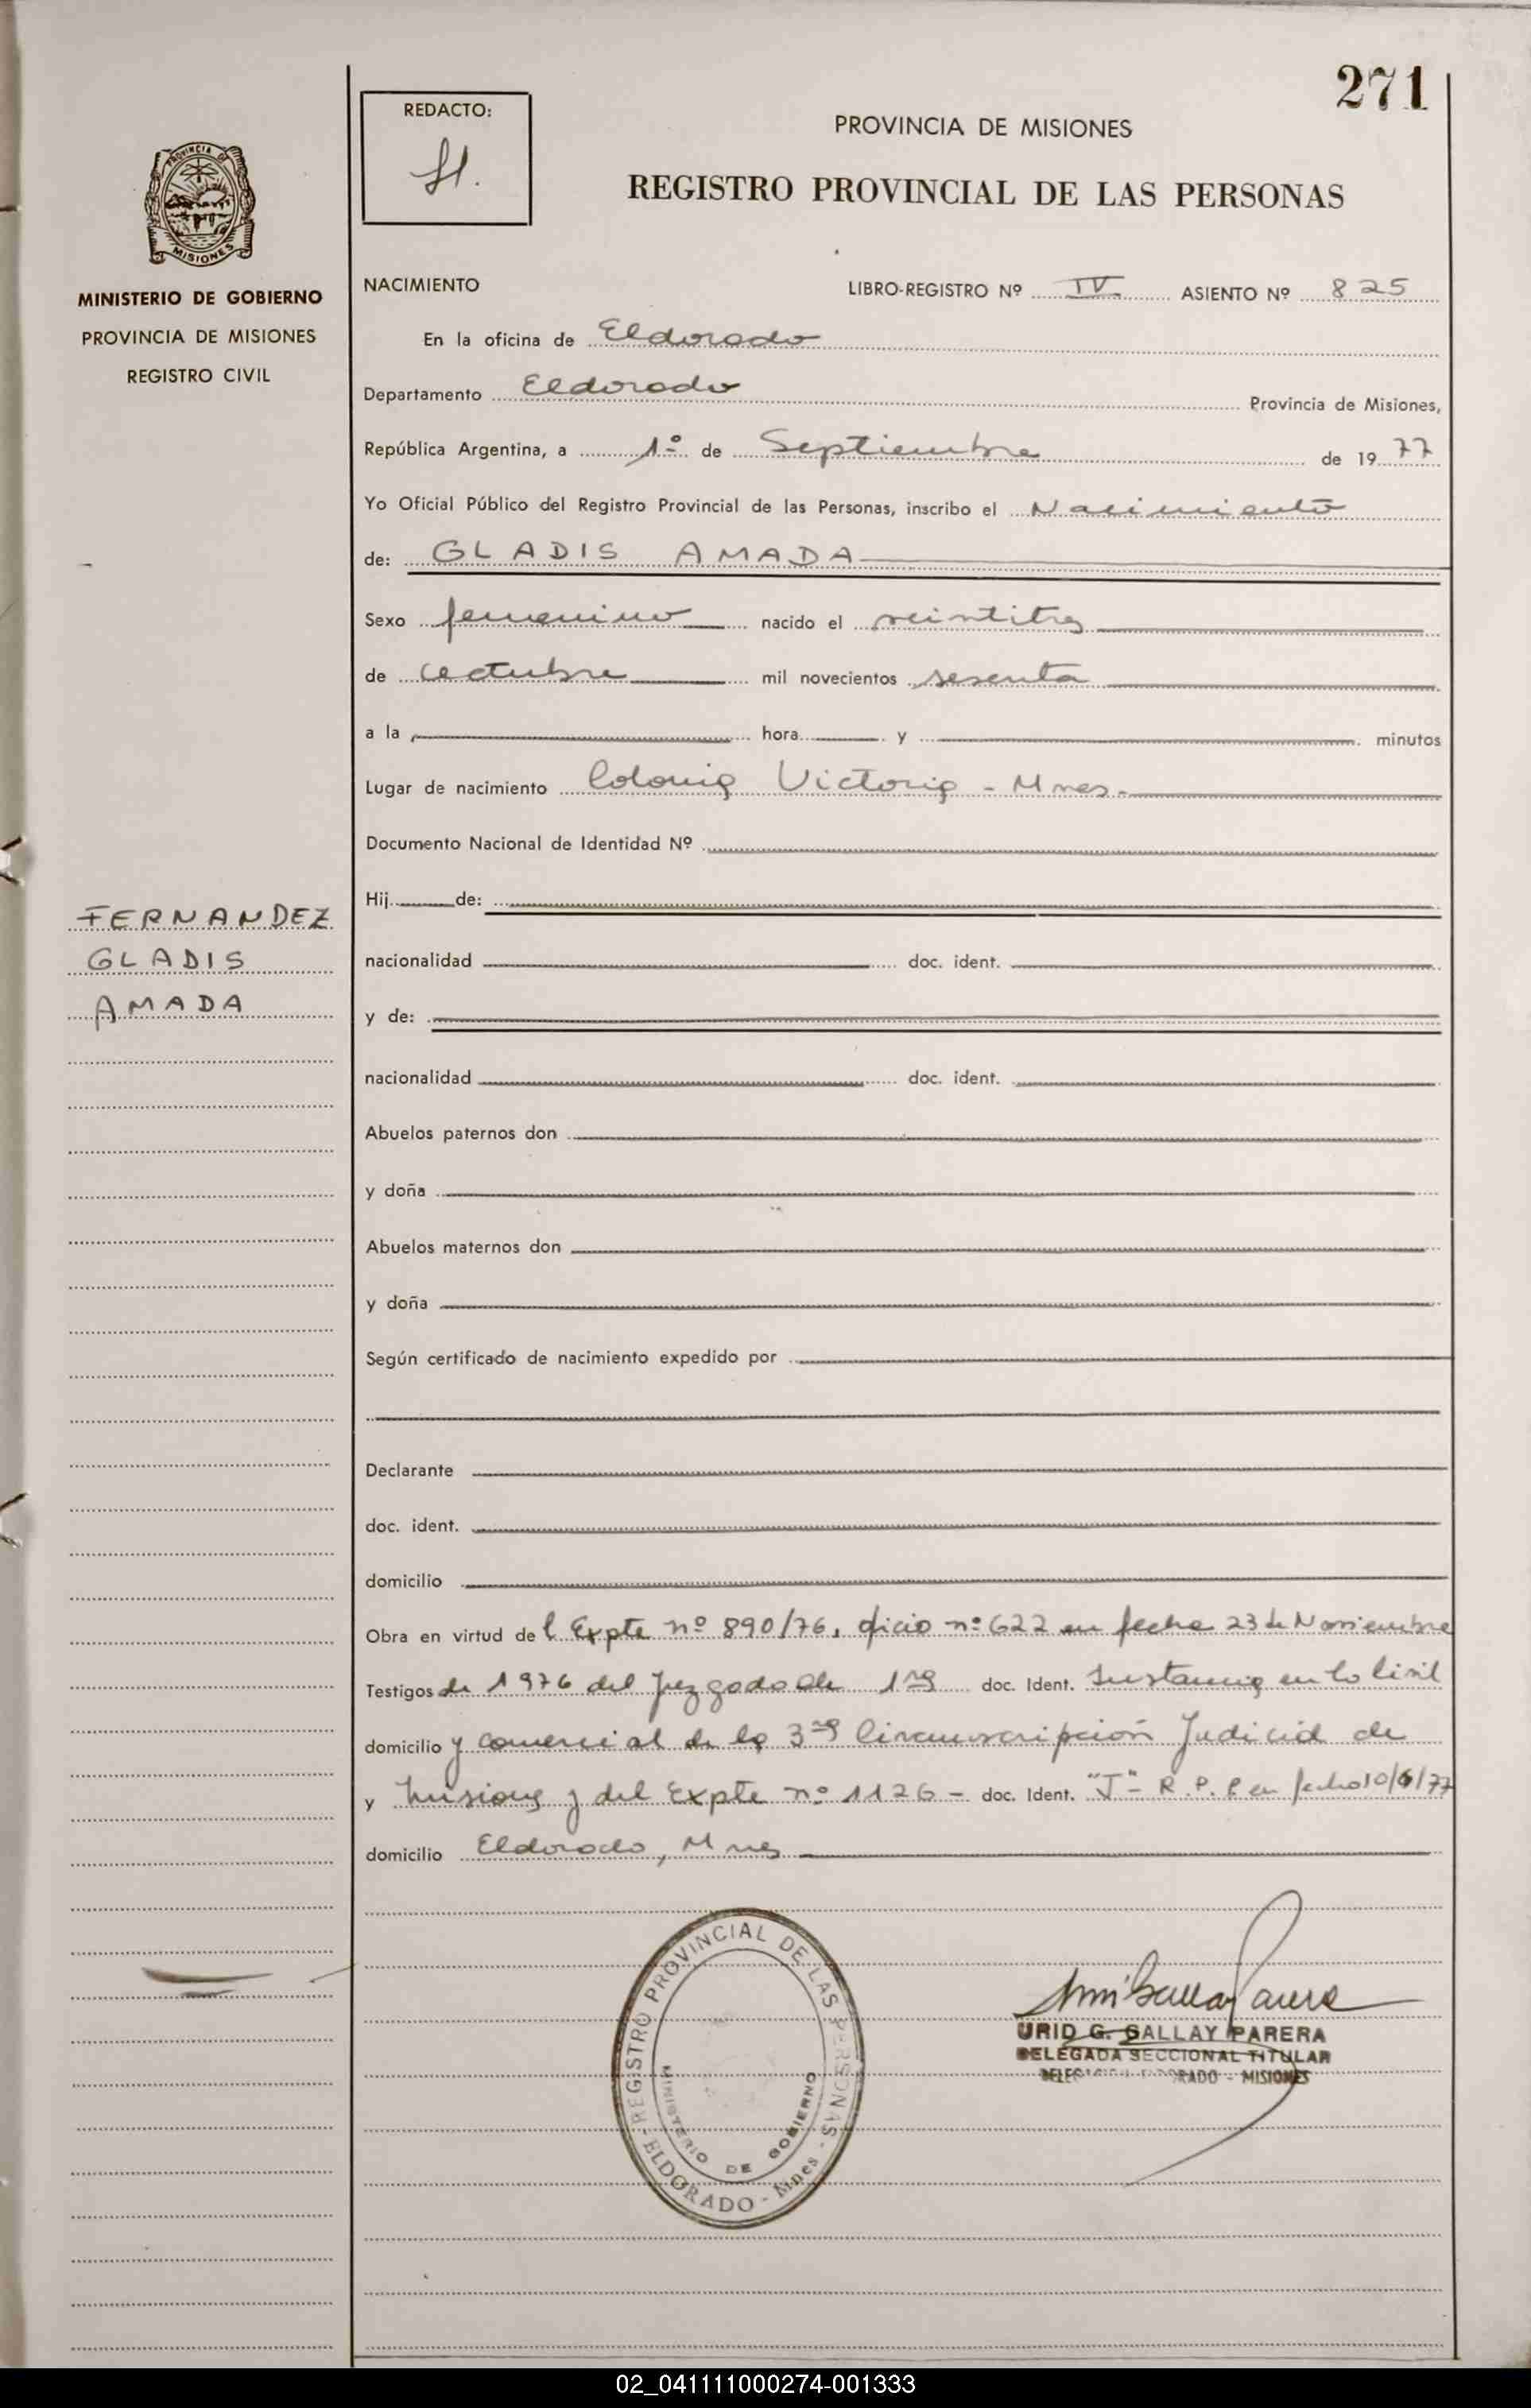 271
REDACTO:
PROVINCIA DE MISIONES
REGISTRO PROVINCIAL DE LAS PERSONAS
PROVINCIA DE
MISIONES
MINISTERIO DE GOBIERNO
PROVINCIA DE MISIONES
REGISTRO CIVIL
NACIMIENTO LIBRO-REGISTRO Nº IV ASIENTO Nº 825
En la oficina de Eldorado
Departamento Eldorado Provincia de Misiones,
República Argentina, a 1º de Septiembre de 1977
Yo Oficial Público del Registro Provincial de las Personas, inscribo el Nacimiento
de: GLADIS AMADA
Sexo femenino nacido el veintitres
de octubre mil novecientos sesenta
a la hora y minutos
Lugar de nacimiento Colonia Victoria - Mnes.
Documento Nacional de Identidad Nº
Hij de:
FERNANDEZ
GLADIS
AMADA
nacionalidad doc. ident.
y de:
nacionalidad doc. ident.
Abuelos paternos don
y doña
Abuelos maternos don
y doña
Según certificado de nacimiento expedido por
Declarante
doc. ident.
domicilio
Obra en virtud del Expte nº 890/76, oficio nº 622 en fecha 23 de Noviembre
Testigos de 1976 del Juzgado de 1ra doc. Ident. Instancia en lo Civil
domicilio y comercial de la 3ra Circunscripción Judicial de
y Misiones y del Expte nº 1126 - doc. Ident. "J" - R.P.P en fecha 10/6/77
domicilio Eldorado, Mnes
REGISTRO PROVINCIAL DE LAS PERSONAS -
ELDORADO - Mnes -
MINISTERIO DE GOBIERNO
URID G. GALLAY PARERA
DELEGADA SECCIONAL TITULAR
DELEGACION ELDORADO - MISIONES
02_041111000274-001333